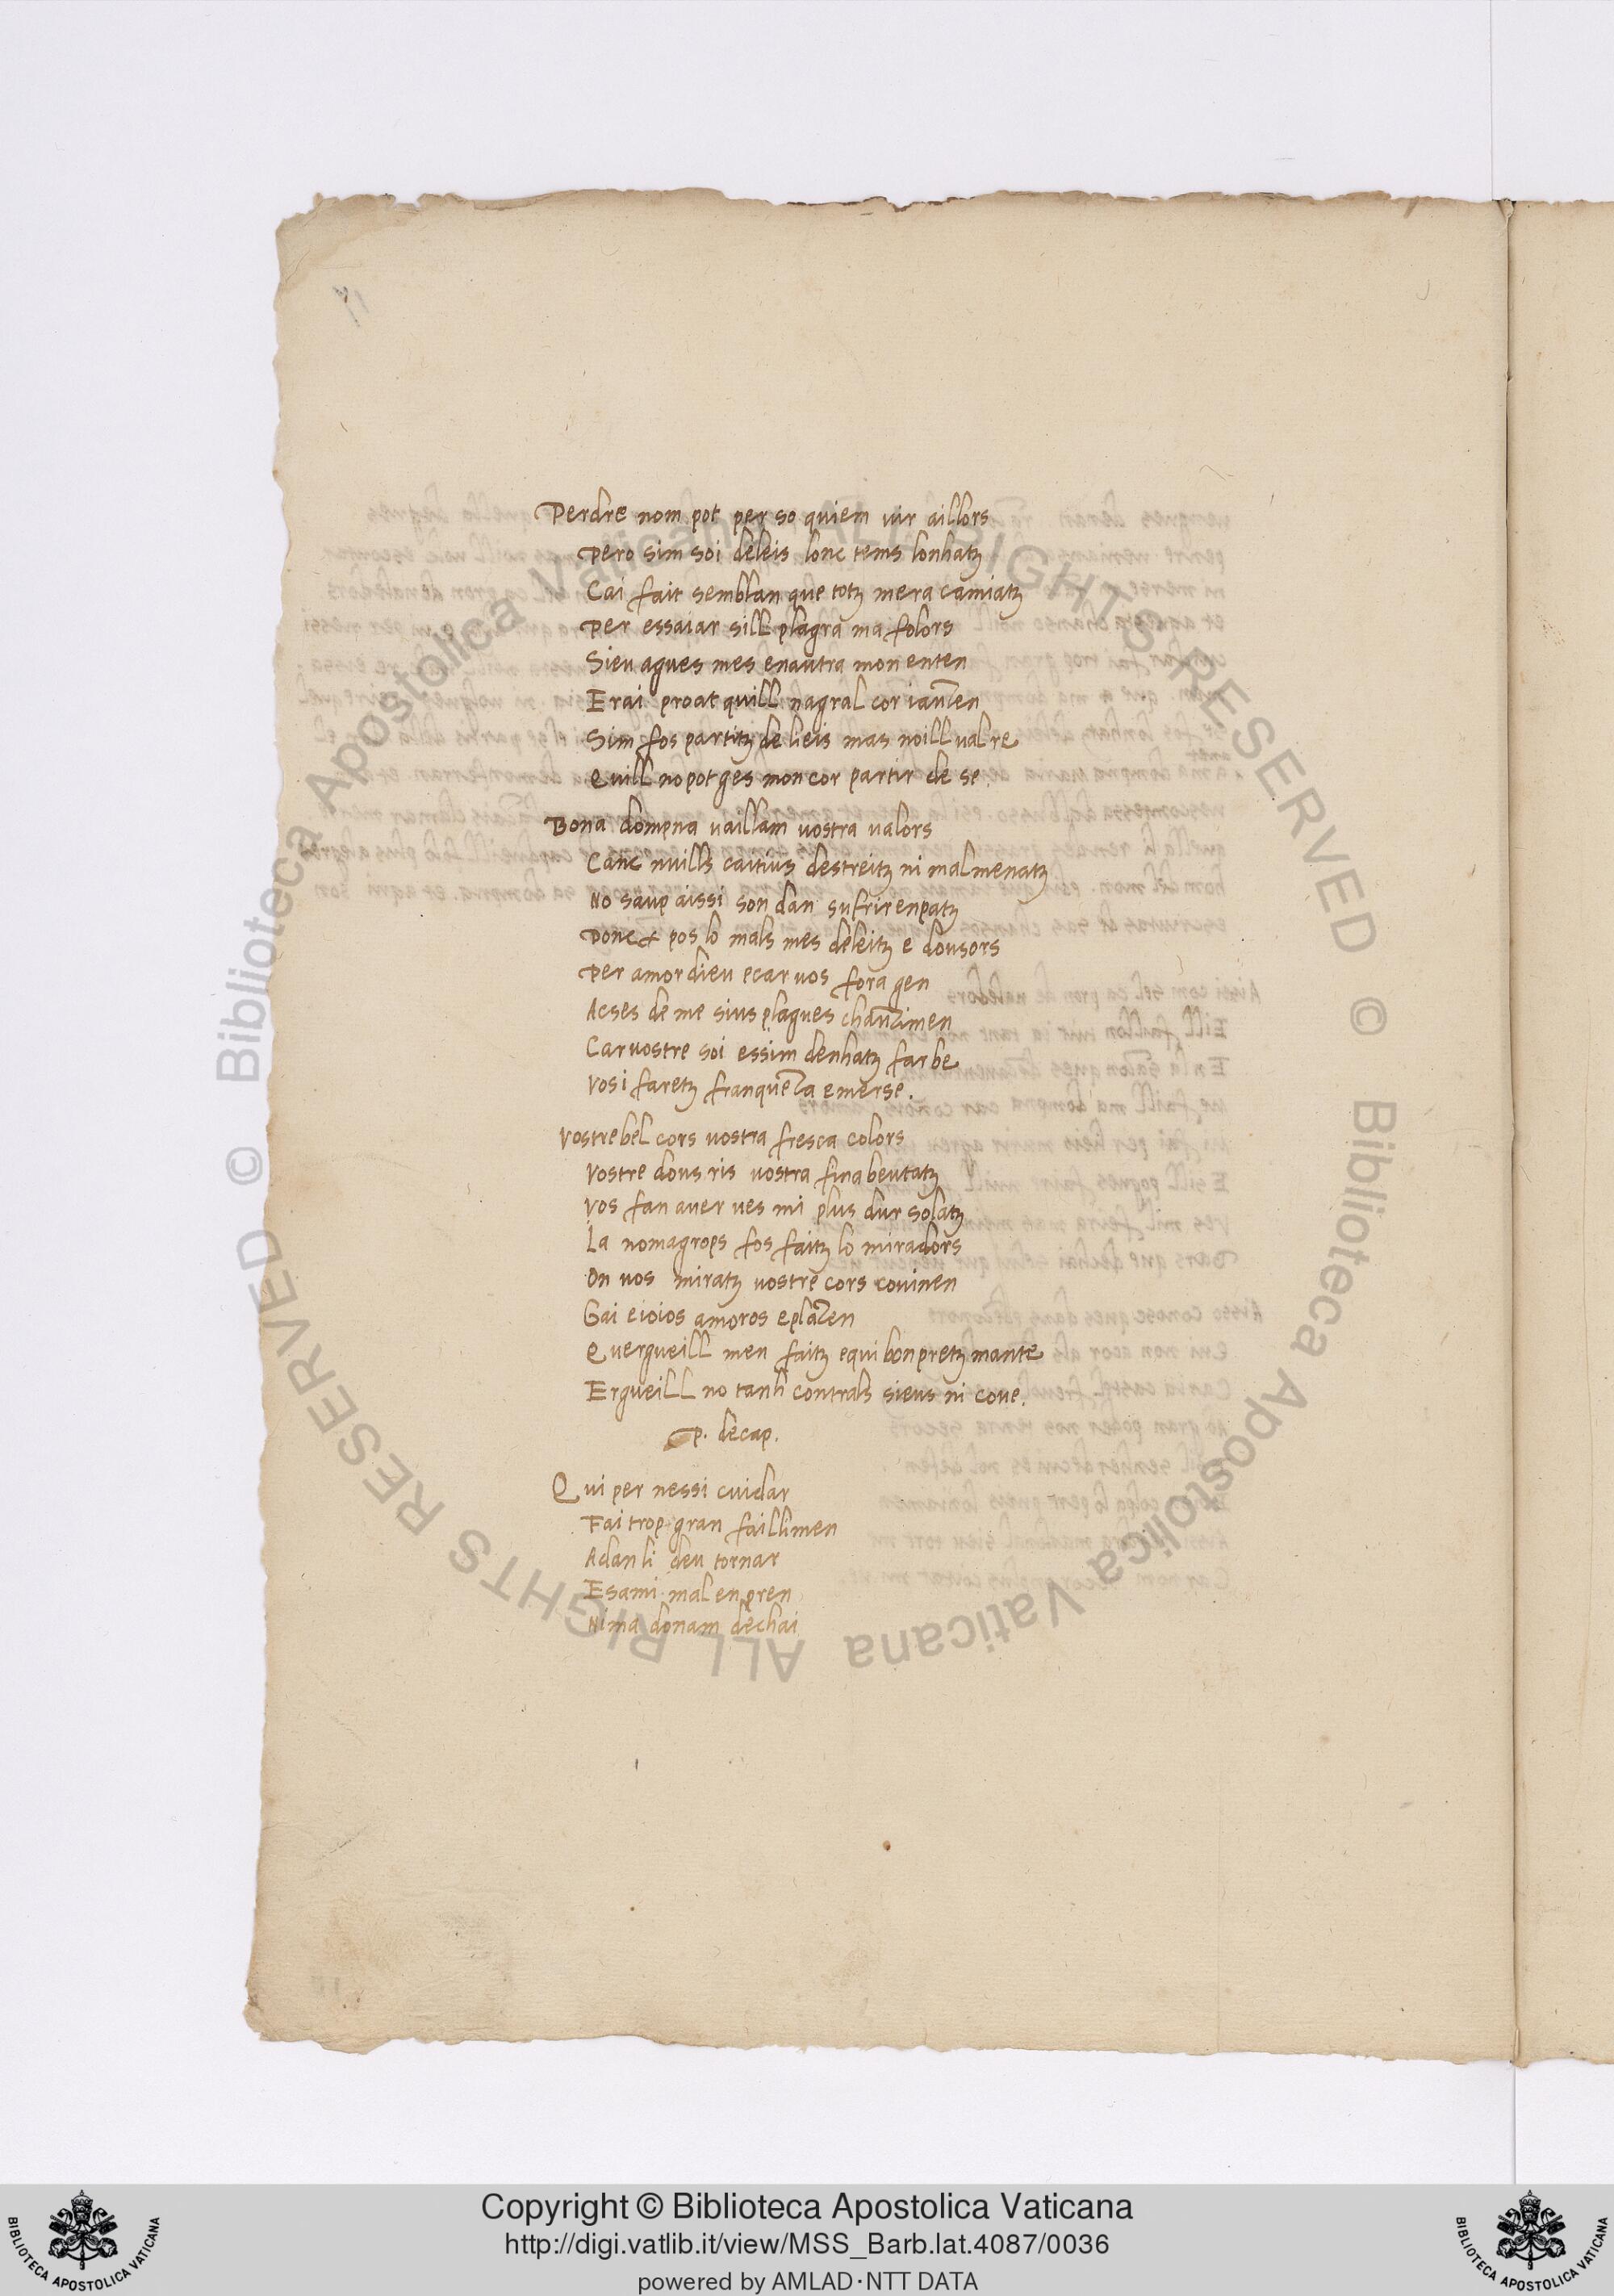 Perdre nom pot per so quiem uir aillors
Pero sim soi deleis lonc tems lonhatz
Cai fait semblan que totz mera camiatz
Per essaiar sill plagra ma folors
Sieu agues mes enautra mon enten
Erai proat quill nagral cor iauzen
Sim fos partitz de lieis mas noill ual re
Quill nopot ges moncor partir de se.
Bona dompna uaillam uostra ualors
Canc nuills caitius destreitz ni malmenatz
No saup aissi son dan sufrirenpatz
Donc pos lo mals mes deleitz e dousors
Per amor dieu ecar uos fora gen
Acses de me sius plagues chauzimen
Caruostre soi essim denhatz far be
Vosi faretz franqueza emerse.
Vostrebel cors uostra fresca colors
Vostre dous ris uostra finabeutatz
Vos fan auer ues mi plus dur solatz
Ia nomagrops fos faitz lo miradors
On uos miratz uostre cors couinen
Gai eioios amoros eplazen
Quergueill men faitz equi bonpretz mante
Ergueill no tanh contrals sieus ni coue.
p. decap.
Qui per nessi cuidar
Fai trop gran faillimen
Adanli deu tornar
Esami mal enpren
Nima donam dechai
Copyright © Biblioteca Apostolica Vaticana
http://digi.vatlib.it/view/MSS_Barb.lat.4087/0036
powered by AMLAD·NTT DATA
BIBLIOTECA APOSTOLICA VATICANA
BIBLIOTECA APOSTOLICA VATICANA
© Biblioteca Apostolica Vaticana ALL RIGHTS RESERVED
© Biblioteca Apostolica Vaticana ALL RIGHTS RESERVED